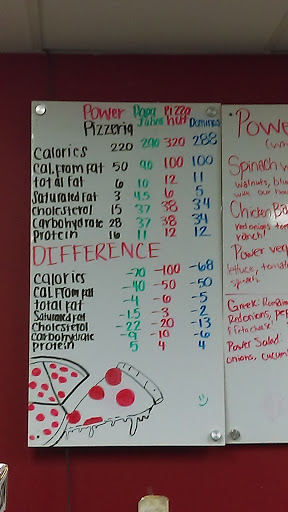 Power Papa Pizza
Pizzeria Johns Hut Dominos
Calories 220 290 320 288
Cal. From Fat 50 90 100 100
total fat 6 10 12 11
Saturated Fat 3 4.5 6 5
Cholesterol 15 37 38 34
Carbohydrate 28 37 38 34
Protein 16 11 12 12
DIFFERENCE
Calories -70 -100 -68
Cal From fat -40 -50 -50
Total Fat -4 -6 -5
Saturated Fat -1.5 -3 -2
Cholesterol -22 -20 -13
Carbohydrate -9 -10 -6
Protein 5 4 4
Powe
Spinach
walnuts, blu
with our hou
Chicken Ba
ranch!
Power veg
lettuce, tomat
Greek: Romain
Red onions, pep
Power Salad:
onions, cucum